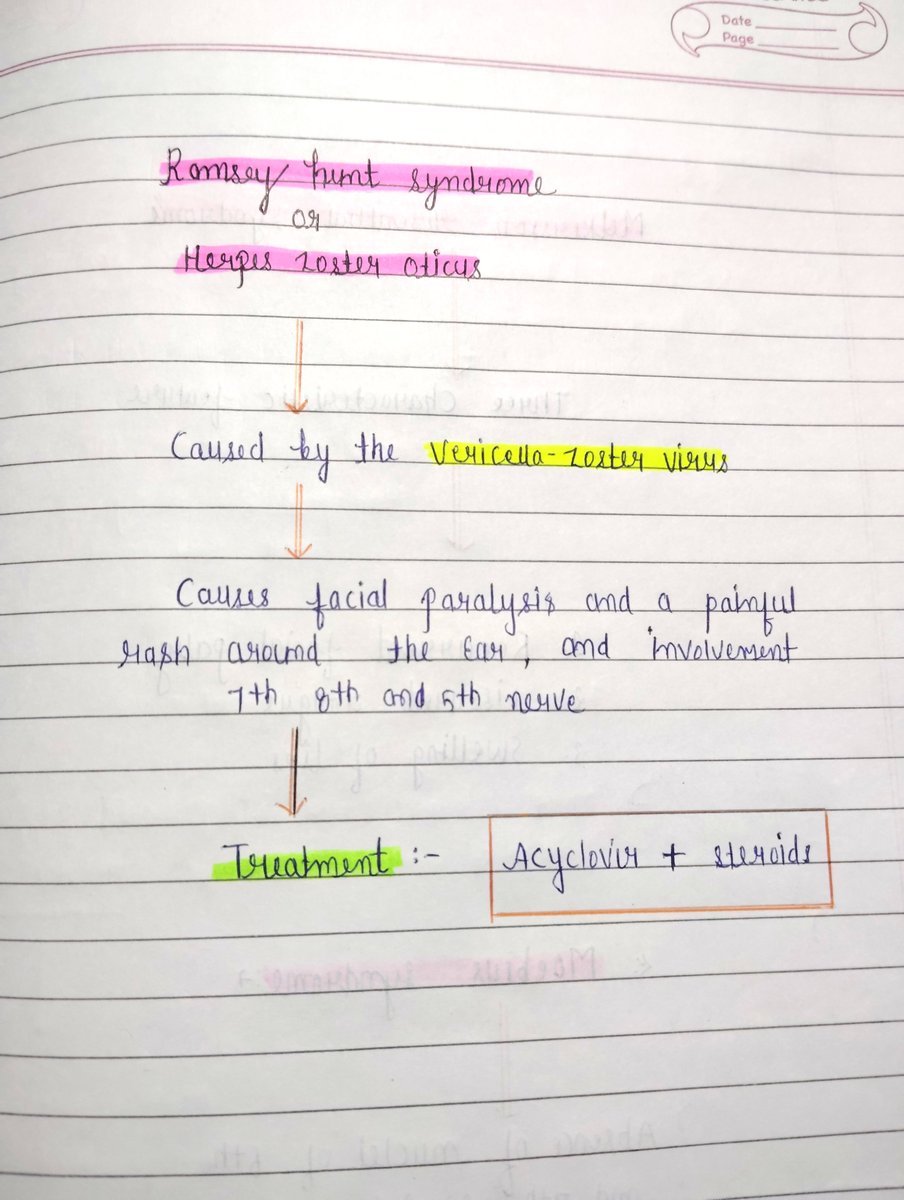 Date
Page
Ramsey hunt syndrome
or
Herpes zoster oticus
Caused by the Vericella-zoster virus
Causes facial paralysis and a painful
rash around the Ear, and involvement
7th 8th and 5th nerve
Treatment :- Acyclovir + steroids